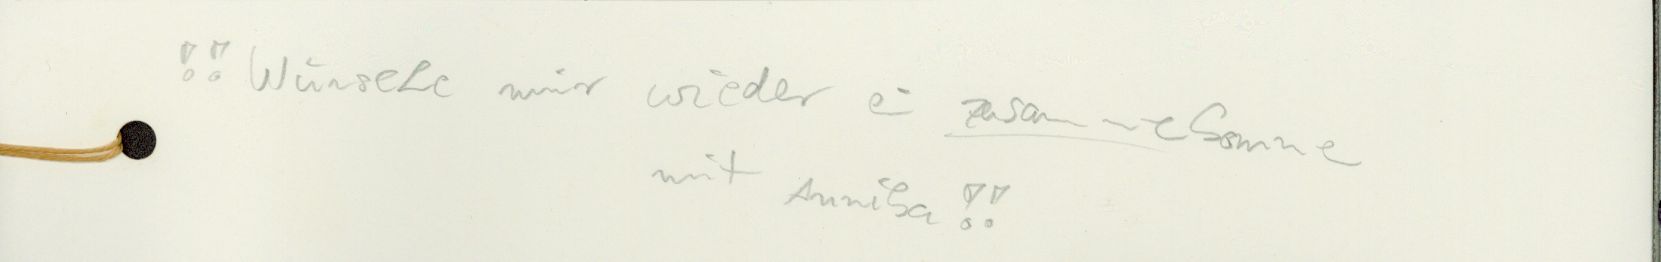 !! Wünsche mir wieder ei zusammekomme
mit Annika !!